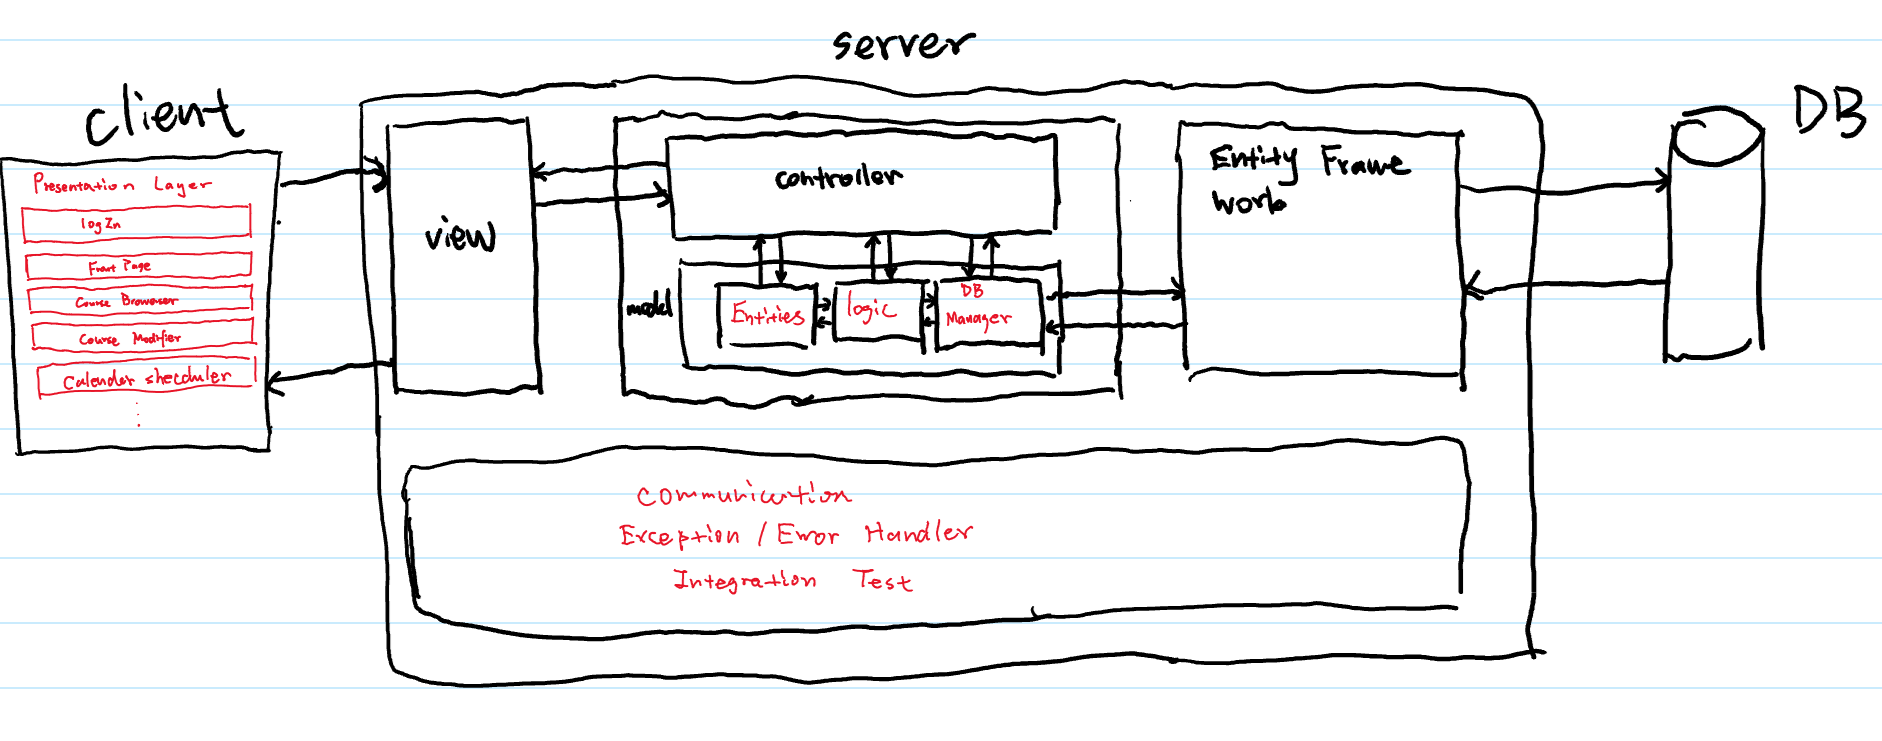 server
client
DB
Presentation Layer
logIn
Front Page
Course Browser
Course Modifier
Calender shecduler
view
controller
model
Entities
logic
DB
Manager
Entity Frame
work
Communication
Exception / Error Handler
Integration Test